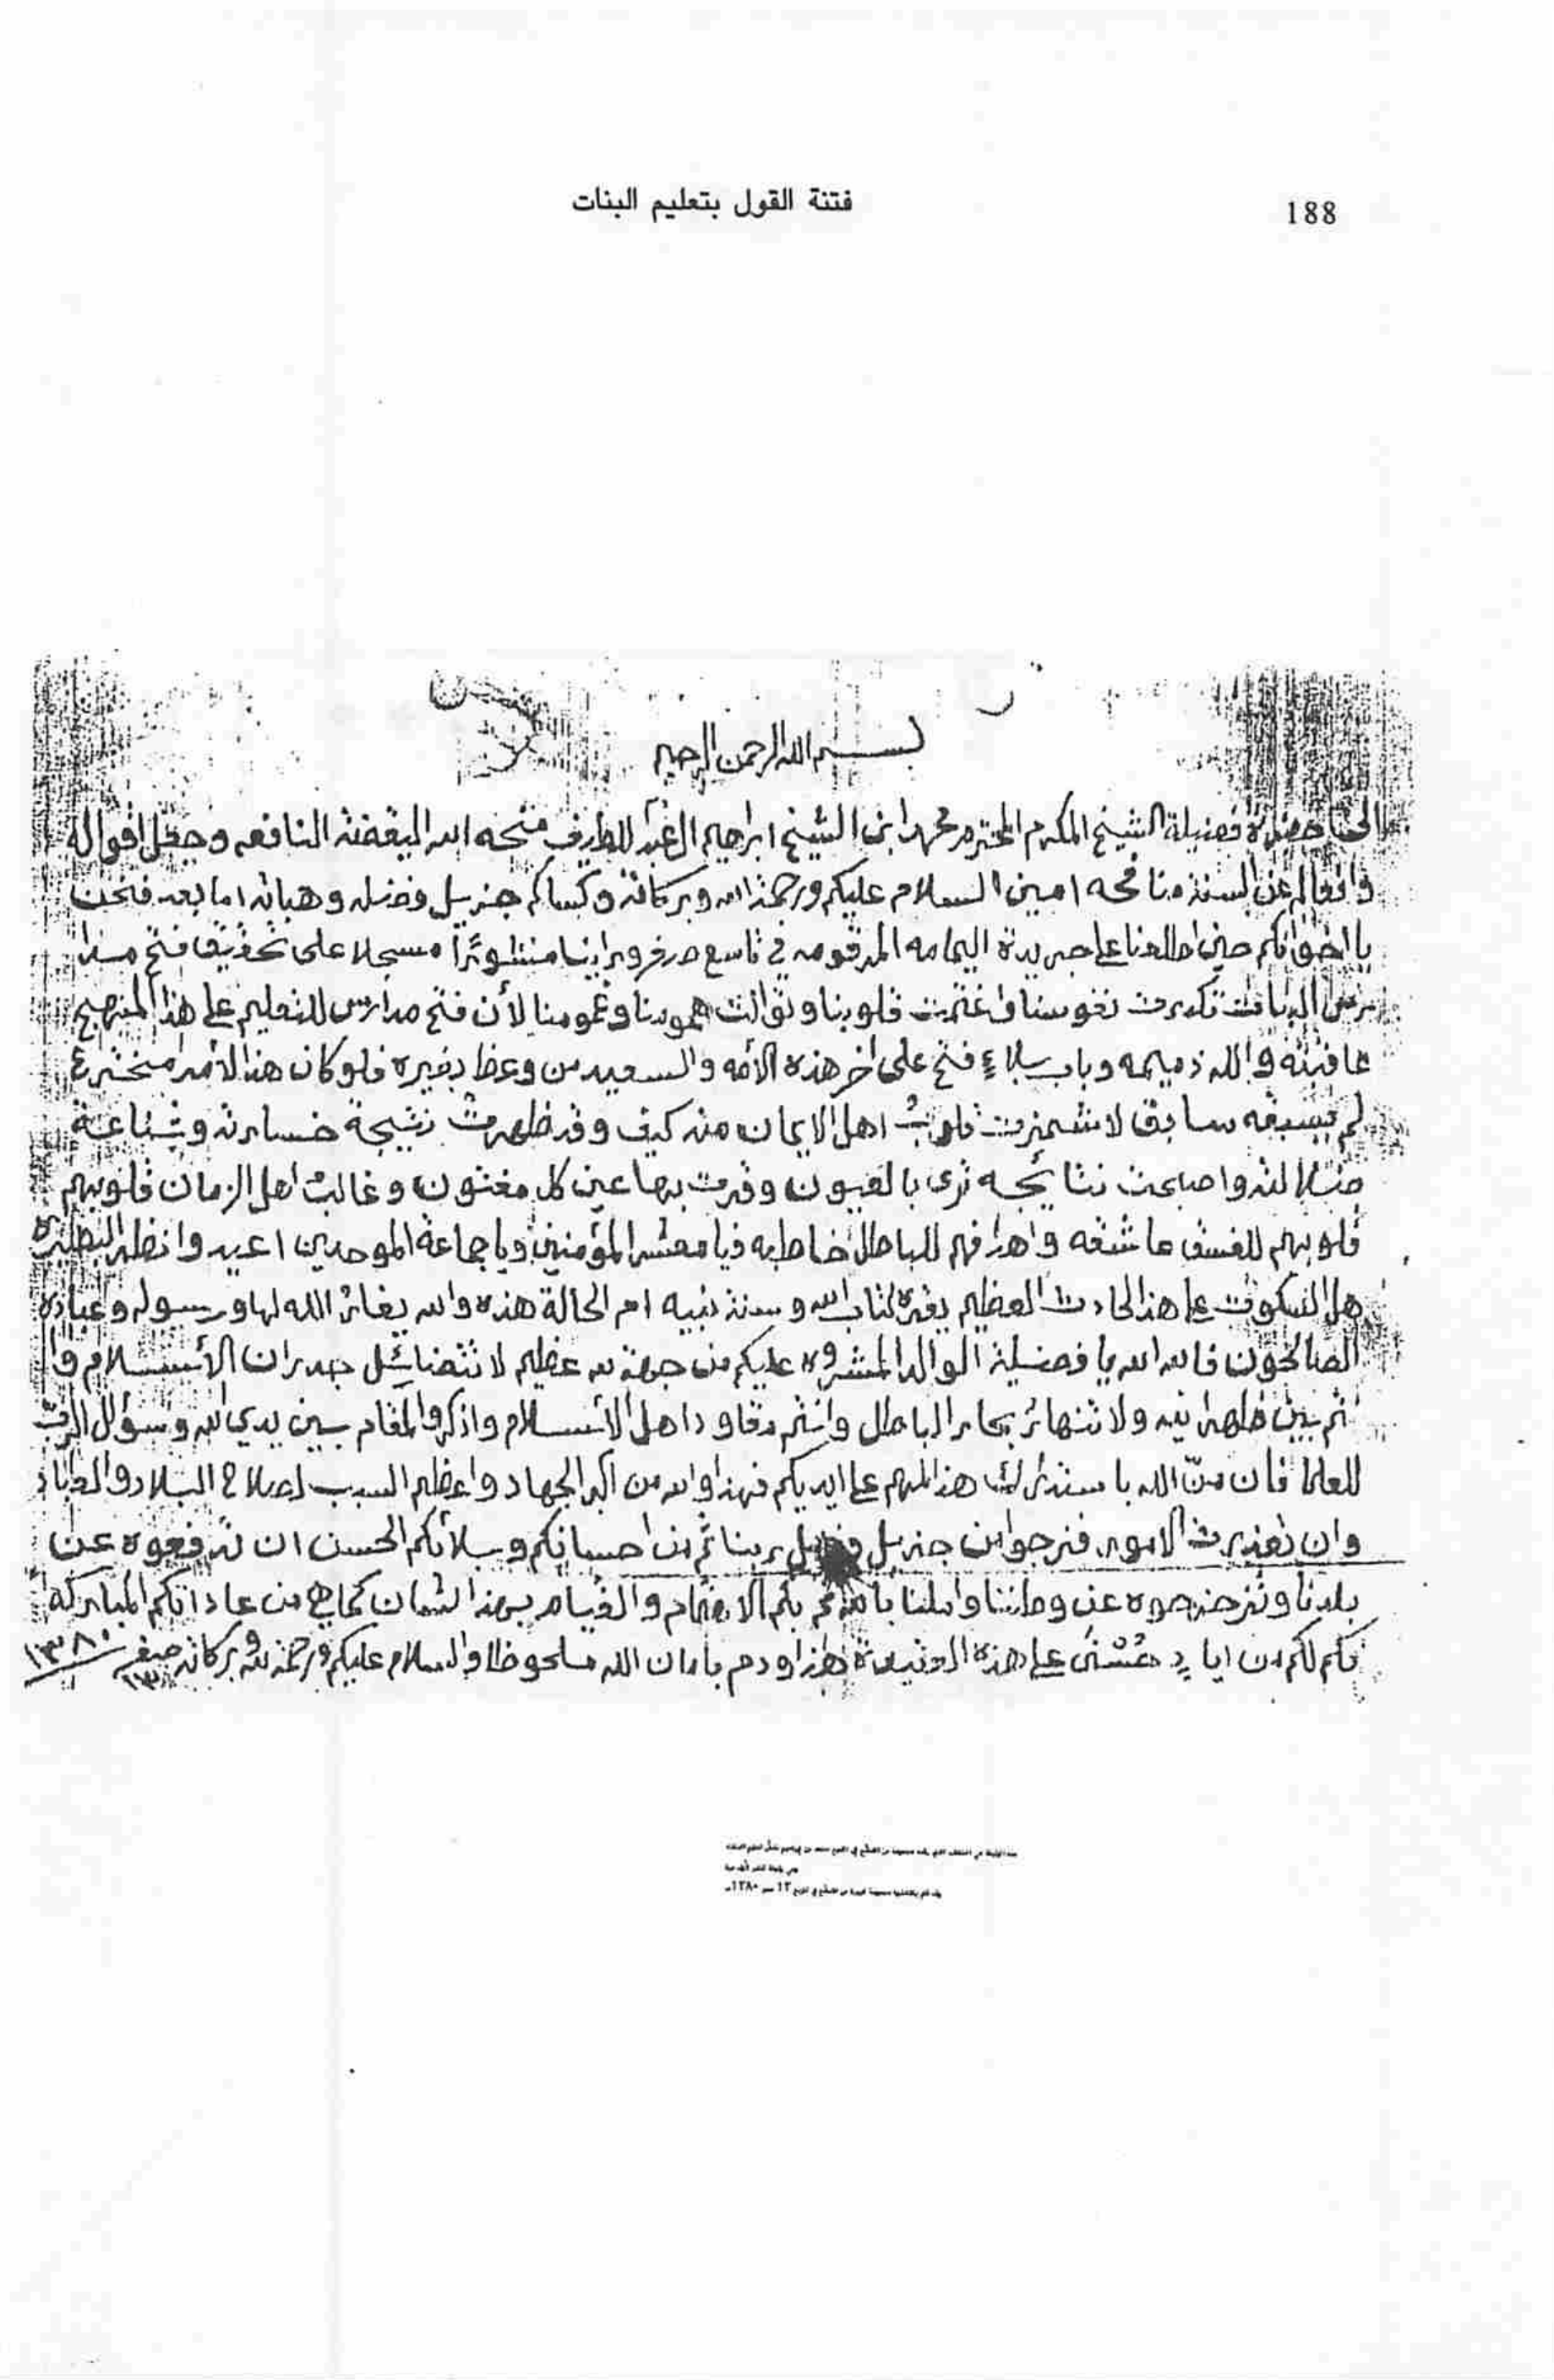 188
فتنة القول بتعليم البنات
بسم الله الرحمن الرحيم
الى حضرة فضيلة الشيخ المكرم المحترم محمد ابن الشيخ ابراهيم ال عبد اللطيف منحه الله اليقضة النافعه وجعل اقواله
وافعاله عن السنة منافحه امين السلام عليكم ورحمة الله وبركاته وكساكم جزيل فضله وهباته اما بعد فنحن
يا اخوانكم حين اطلعنا على جريدة اليمامه المرقومه في تاسع صفر وراينا منشوراً مسجلا على تحقيق فتح مدا
رس البنات تكدرت نفوسنا واغتمت قلوبنا وتوالت همومنا وغمومنا لأن فتح مدارس للتعليم على هذا المنهج
عاقبته والله ذميمه وباب بلاءٍ فتح على اخر هذه الأمه والسعيد من وعظ بغيره فلو كان هذا الأمر مخترع
لم يسبقه سابق لاشمئزت قلوبُ اهل الايمان منه كيف وقد ظهرت نتيجة خسارته وشناعة
ضلالته واصبحت نتائجه ترى بالعيون وقرت بها عين كل مفتون وغالبُ اهل الزمان قلوبهم
قلوبهم للفسق عاشقه واهدافهم للباطل خاطبه فيا معشر المؤمنين ويا جماعة الموحدين اعيدوا النظر
هل السكوت على هذا الحادث العظيم يقره كتاب الله وسنة نبيه ام الحالة هذه والله يغار الله لها ورسوله وعباده
الصالحون فالله الله يا فضيلة الوالد المشروه عليكم من جهة لله عظيم لا تتضائل جدران الأسلام وا
نتم بين ظهرانيه ولا تنهار بحار الباطل وانتم قاود اهل الأسلام واذكروا المقام بين يدي الله وسؤال الربّ
للعلما فان منّ الله باستدراك هذا المهم على ايديكم فهذا والله من اكبر الجهاد واعظم السبب لصلاح البلاد والعباد
وان تعذرت الامور فنرجوا من جزيل فضل ربنا ثم من احسانكم وسلائكم الحسن ان ترفعوه عن
بلدنا وتزحزحوه عن وطننا واملنا بالله ثم بكم الاهتمام والقيام بهذا الشان كما هي من عاداتكم المباركه
فكم لكم من ايادٍ حسنى على هذه العقيدة هذا ودم بامان الله ملحوظا والسلام عليكم ورحمة الله وبركاته صفر ١٣٨٠
١٣